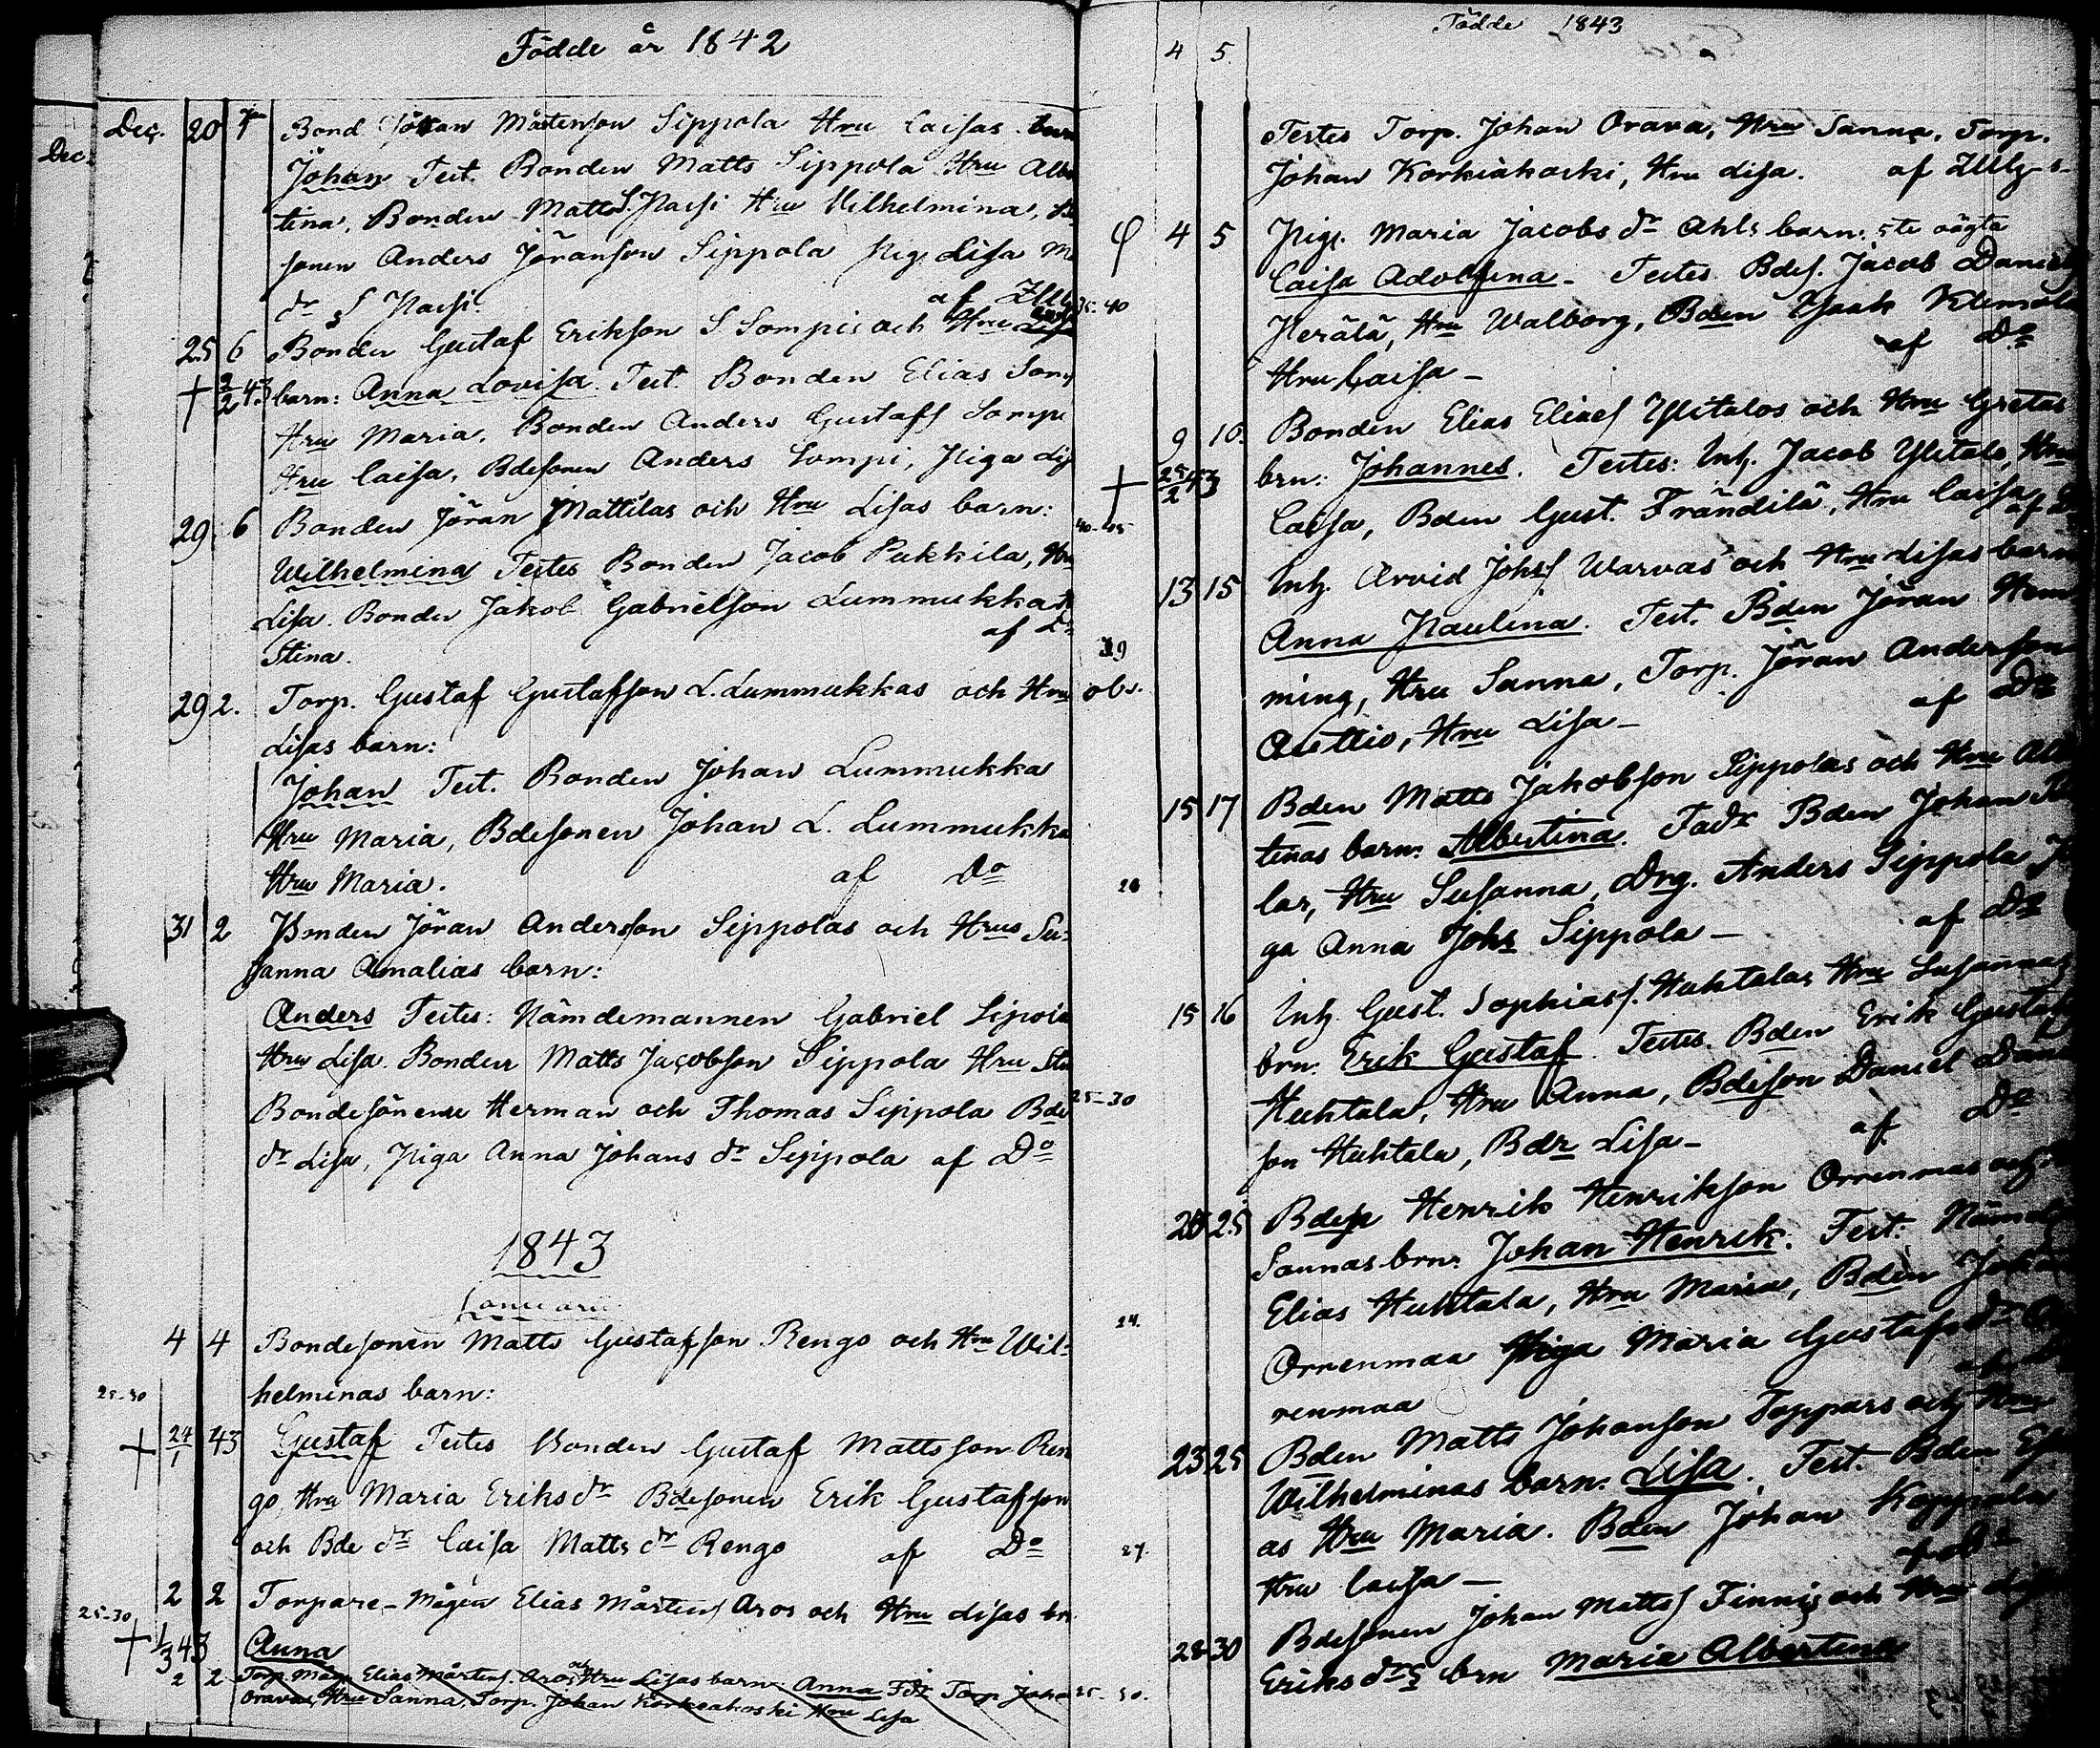 Födde år 1842
Dec. 20 7 Bond Johan Mårtenson Sippola Hru Caisas barn
Dec.
Johan Test. Bonden Matts Sippola Hru Alber
tina, Bonden Matts S. Passi Hru Wilhelmina,
sonen Anders Jöranson Sippola Pig. Lisa
dr S Passi. af
25 6 Bonden Gustaf Erikson S Sompis och Hru
+ 2/2 43 barn: Anna Lovisa. Test. Bonden Elias Som
Hru Maria, Bonden Anders Gustafs Sompi
Hru Caisa, Bdesonen Anders Sompi, Piga Lis
29 6 Bonden Jöran Mattilas och Hru Lisas barn:
Wilhelmina Testes Bonden Jacob Pukkila, Hru
Lisa. Bonden Jakob Gabrielson Lummukka
Stina. af Do
29 2. Torp. Gustaf Gustafson L. Lummukkas och Hru
Lisas barn:
Johan Test. Bonden Johan Lummukka
Hru Maria, Bdesonen Johan L. Lummukka
Hru Maria. af Do
31 2 Bonden Jöran Anderson Sippolas och Hrus Su-
sanna Amalias barn:
Anders Testes: Nämdemannen Gabriel Sipola
Hru Lisa. Bonden Matts Jacobson Sippola Hru
Bondesönerne Herman och Thomas Sippola Bde
dr Lisa, Piga Anna Johans dr Sippola af Do
1843
Januarii
4 4 Bondesonen Matts Gustafson Rengo och Hru Wil-
25-30 helminas barn:
+ 24/1 43 Gustaf Testes Bonden Gustaf Mattsson Ren
go, Hru Maria Eriks dr Bdesonen Erik Gustafson
och Bde dr Caisa Matts dr Rengo af Do
2 2 Torpare-Mågen Elias Mårtens Aros och Hru Lisas brn
25-30
+ 1/3 43 Anna
2 2 Torp. Måg. Elias Mårtens. Aros och Hru Lisas barn Anna Fdr Torp Joha
Orava, Hru Sanna, Torp. Johan Korkeakoski Hru Lisa
Födde 1843
4 5.
Testes Torp. Johan Orava, Hru Sanna, Torp.
Johan Korkiakoski, Hru Lisa. af
4 5 Pig. Maria Jacobs dr Ahls barn: 5te oägta
Caisa Adolfina - Testes Bdes. Jacob Daniels
35-40 Herälä, Hru Walborg, Bden Isaak Klemola
Hru Caisa - af Do
9 10. Bonden Elias Elias Ylitalos och Hru Gretas
+ 25/2 43 brn: Johannes. Testes: Inh. Jacob Ylitalo, Hru
40-45 Caisa, Bden Gust. Frändilä, Hru Caisa af Do
13 15 Inh. Arvid Johs Warvas och Hru Lisas barn
Anna Paulina. Test. Bden Jöran Hem
39 ming, Hru Sanna, Torp. Jöran Anderson
obs. Auttio, Hru Lisa - af Do
15 17 Bden Matts Jakobson Sippolas och Hru Alb
tinas barn: Albertina. Fadr Bden Johan
28 lar, Hru Susanna, Drg. Anders Sippola
ga Anna Johs Sippola - af Do
15 16 Inh. Gust. Sophias. Huhtalas Hru Susannas
brn: Erik Gustaf. Testes. Bden Erik Gustaf
25-30 Huhtala, Hru Anna, Bdeson Daniel Dani
son Huhtala, Bdr Lisa - af Do
25 Bdes Henrik Henrikson Orrenmas och
Sannas brn: Johan Henrik. Test. Nämd
Elias Huhtala, Hru Maria, Bden Joh
24. Orrenmaa Piga Maria Gustafs dr
renmaa af
23 25 Bden Matts Johanson Toppars och Hru
Wilhelminas barn: Lisa. Test. Bden
27. as Hru Maria. Bden Johan Koppala
Hru Caisa - af Do
28 30 Bdesonen Johan Matts Finnis och Hru
25-30. Eriks drs brn Maria Albertina